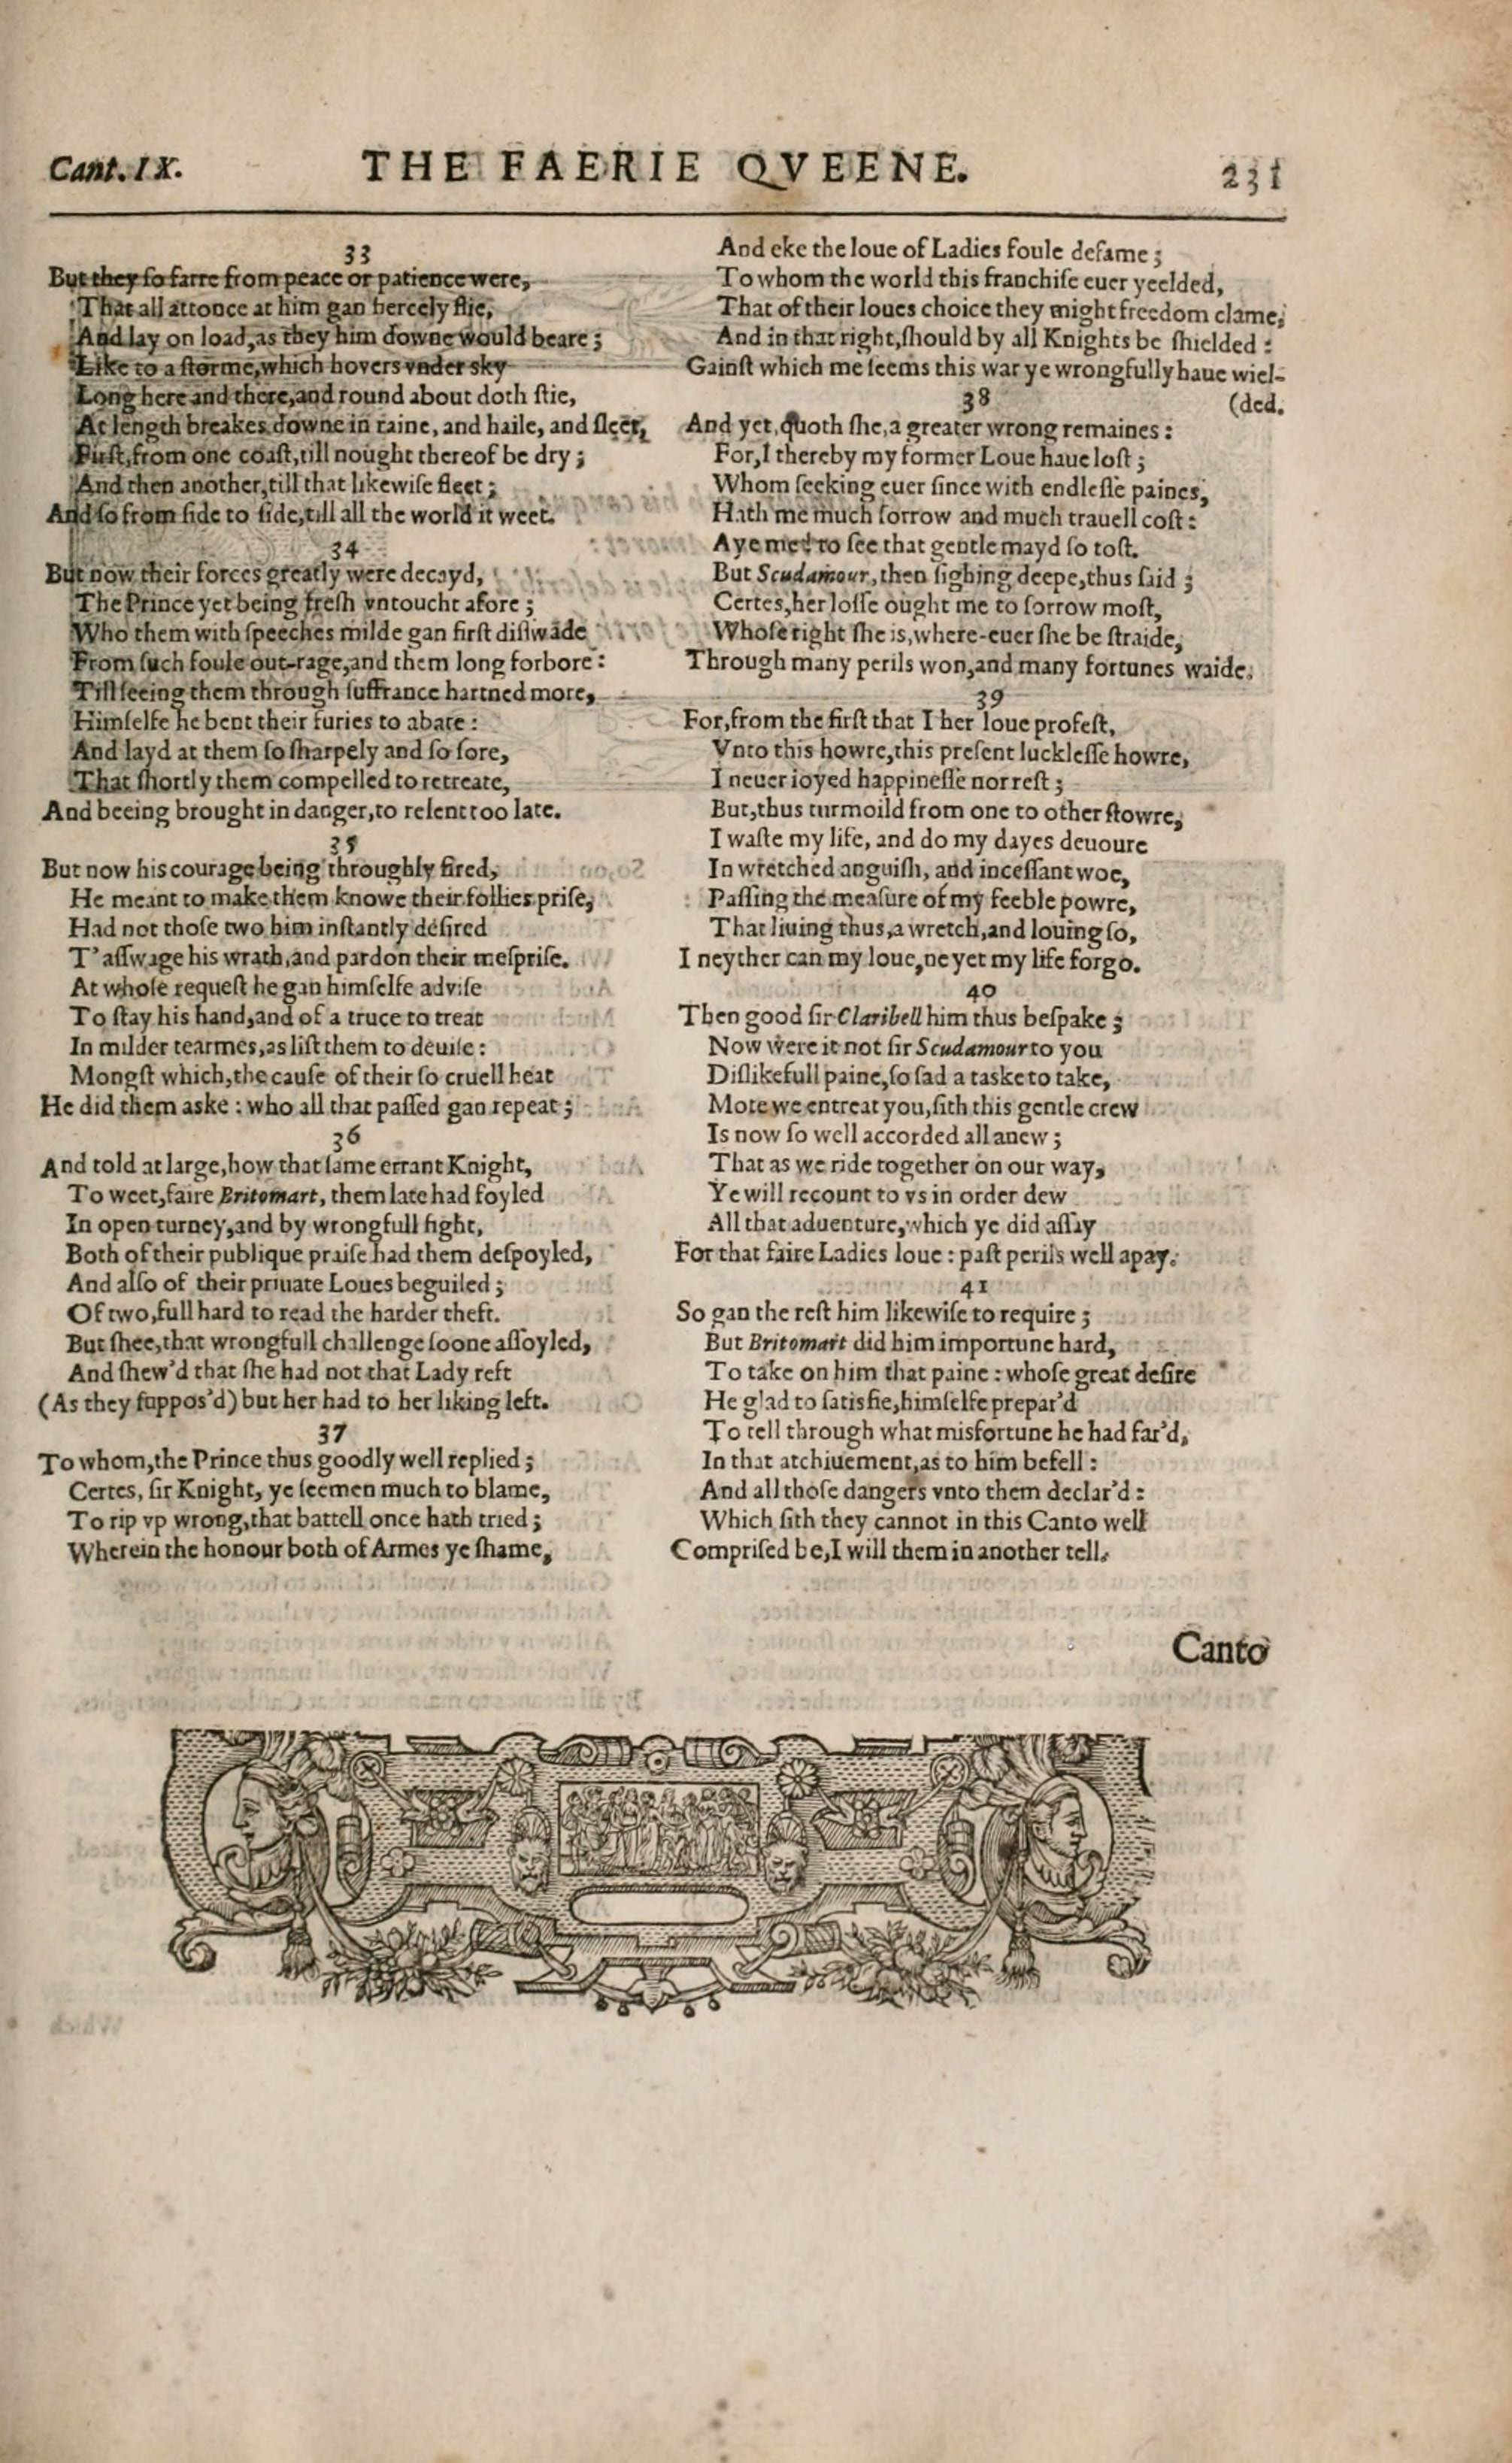 Cant. IX.
THE FAERIE QVEENE.
231
33
But they ſo farre from peace or patience were,
That all attonce at him gan fiercely flie,
And lay on load, as they him downe would beare;
Like to a ſtorme, which hovers vnder sky
Long here and there, and round about doth ſtie,
At length breakes downe in raine, and haile, and ſleet,
Firſt, from one coaſt, till nought thereof be dry;
And then another, till that likewiſe fleet;
And ſo from ſide to ſide, till all the world it weet.
34
But now their forces greatly were decayd,
The Prince yet being freſh vntoucht afore;
Who them with ſpeeches milde gan firſt diſſwade
From ſuch foule out-rage, and them long forbore:
Till ſeeing them through ſuffrance hartned more,
Himſelfe he bent their furies to abate:
And layd at them ſo ſharpely and ſo ſore,
That ſhortly them compelled to retreate,
And beeing brought in danger, to relent too late.
35
But now his courage being throughly fired,
He meant to make them knowe their follies priſe,
Had not thoſe two him inſtantly deſired
T'aſſwage his wrath, and pardon their meſpriſe.
At whoſe requeſt he gan himſelfe adviſe
To ſtay his hand, and of a truce to treat
In milder tearmes, as liſt them to deuiſe:
Mongſt which, the cauſe of their ſo cruell heat
He did them aske: who all that paſſed gan repeat;
36
And told at large, how that ſame errant Knight,
To weet, faire Britomart, them late had foyled
In open turney, and by wrongfull fight,
Both of their publique praiſe had them deſpoyled,
And alſo of their priuate Loues beguiled;
Of two, full hard to read the harder theft.
But ſhee, that wrongfull challenge ſoone aſſoyled,
And ſhew'd that ſhe had not that Lady reft
(As they ſuppos'd) but her had to her liking left.
37
To whom, the Prince thus goodly well replied;
Certes, ſir Knight, ye ſeemen much to blame,
To rip vp wrong, that battell once hath tried;
Wherein the honour both of Armes ye ſhame,
And eke the loue of Ladies foule defame;
To whom the world this franchiſe euer yeelded,
That of their loues choice they might freedom clame,
And in that right, ſhould by all Knights be ſhielded:
Gainſt which me ſeems this war ye wrongfully haue wiel-
(ded.
38
And yet, quoth ſhe, a greater wrong remaines:
For, I thereby my former Loue haue loſt;
Whom ſeeking euer ſince with endleſſe paines,
Hath me much ſorrow and much trauell coſt:
Aye me! to ſee that gentle mayd ſo toſt.
But Scudamour, then ſighing deepe, thus ſaid;
Certes, her loſſe ought me to ſorrow moſt,
Whoſe right ſhe is, where-euer ſhe be ſtraide,
Through many perils won, and many fortunes waide.
39
For, from the firſt that I her loue profeſt,
Vnto this howre, this preſent luckleſſe howre,
I neuer ioyed happineſſe nor reſt;
But, thus turmoild from one to other ſtowre,
I waſte my life, and do my dayes deuoure
In wretched anguiſh, and inceſſant woe,
Paſſing the meaſure of my feeble powre,
That liuing thus, a wretch, and louing ſo,
I neyther can my loue, ne yet my life forgo.
40
Then good ſir Claribell him thus beſpake;
Now were it not ſir Scudamour to you
Diſlikefull paine, ſo ſad a taske to take,
Mote we entreat you, ſith this gentle crew
Is now ſo well accorded all anew;
That as we ride together on our way,
Ye will recount to vs in order dew
All that aduenture, which ye did aſſay
For that faire Ladies loue: paſt perils well apay.
41
So gan the reſt him likewiſe to require;
But Britomart did him importune hard,
To take on him that paine: whoſe great deſire
He glad to ſatisfie, himſelfe prepar'd
To tell through what misfortune he had far'd,
In that atchiuement, as to him befell:
And all thoſe dangers vnto them declar'd:
Which ſith they cannot in this Canto well
Compriſed be, I will them in another tell.
Canto